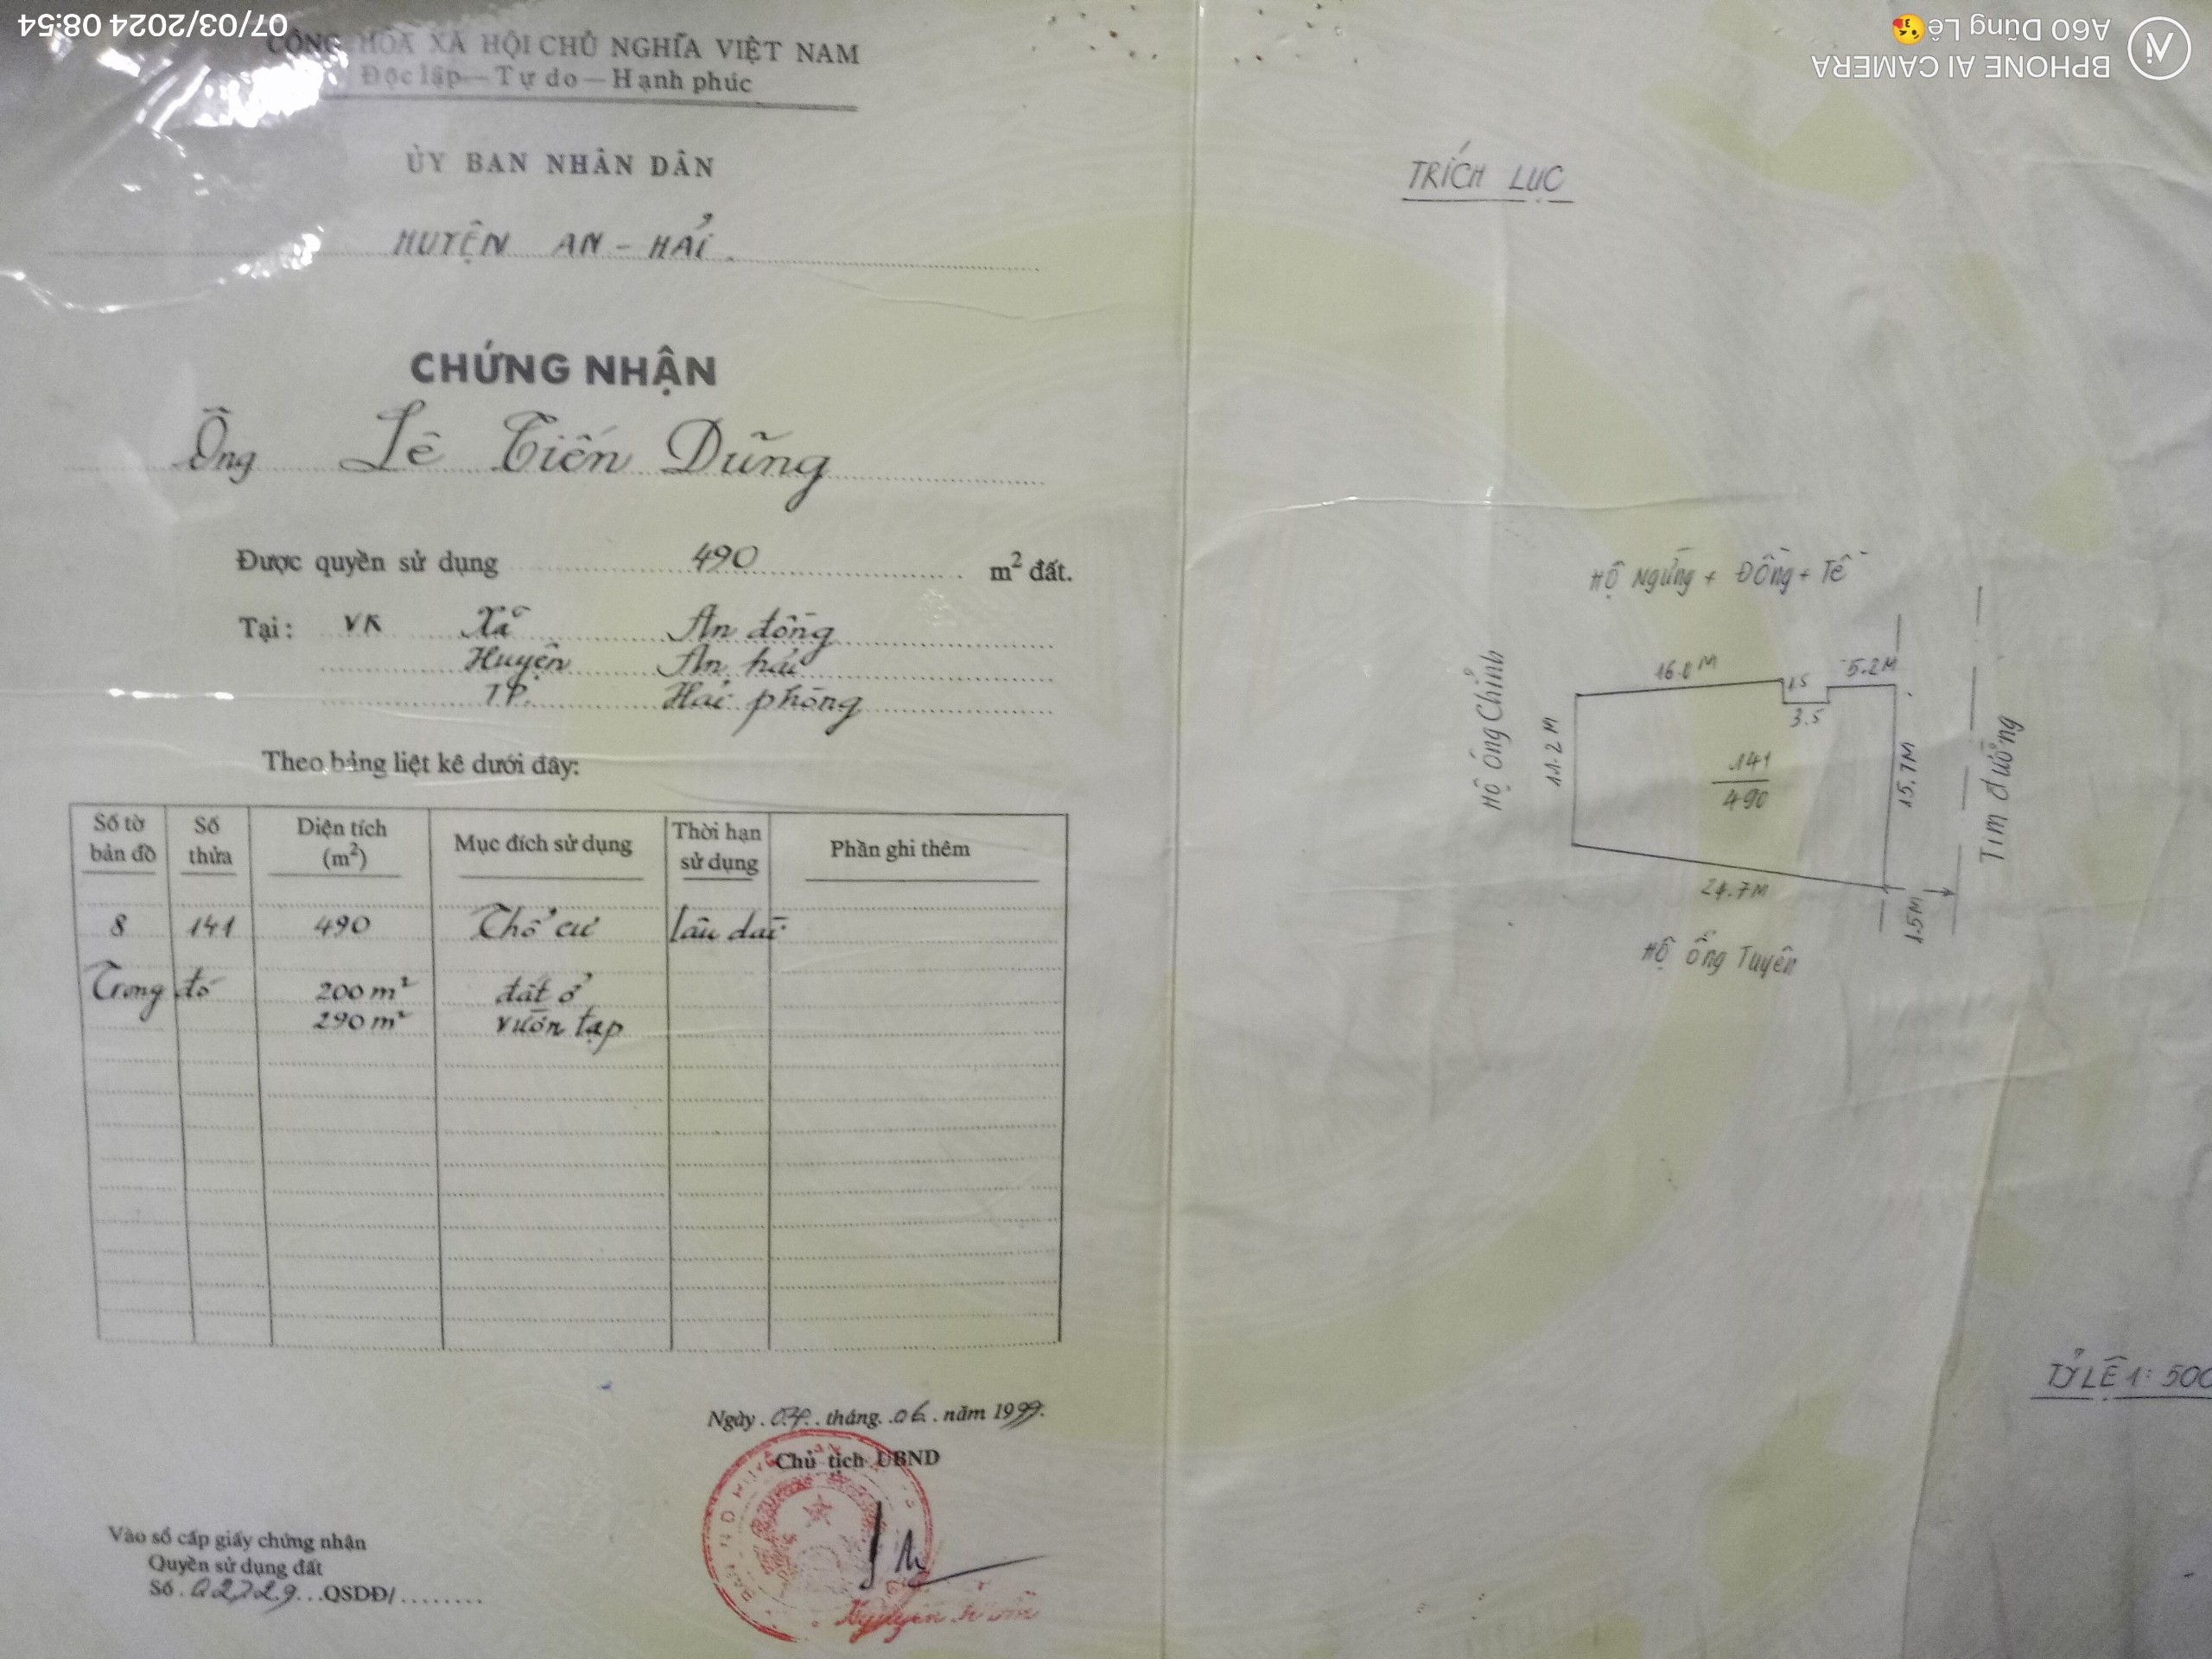 07/03/2024 08:54
BPHONE AI CAMERA
A60 Dũng Lê😘
CỘNG HÒA XÃ HỘI CHỦ NGHĨA VIỆT NAM
Độc lập — Tự do — Hạnh phúc
ỦY BAN NHÂN DÂN
HUYỆN AN - HẢI.
CHỨNG NHẬN
Ông Lê Tiến Dũng
Được quyền sử dụng 490 m² đất.
Tại: VK Xã An đồng
Huyện An hải
TP. Hải phòng
Theo bảng liệt kê dưới đây:
Số tờ bản đồ Số thửa Diện tích (m²) Mục đích sử dụng Thời hạn sử dụng Phần ghi thêm
8 141 490 Thổ cư lâu dài
Trong đó 200 m² đất ở
290 m² vườn tạp
Ngày 04 tháng 06 năm 1999.
Chủ tịch UBND
Vào sổ cấp giấy chứng nhận
Quyền sử dụng đất
Số 02729 QSDĐ/
TRÍCH LỤC
HỘ NGỪNG + ĐỒNG + TẾ
HỘ ÔNG CHỈNH
16.0M
1.5
3.5
5.2M
11.2M
141
490
15.7M
TIM ĐƯỜNG
24.7M
1.5M
HỘ ÔNG TUYÊN
TỶ LỆ 1: 500